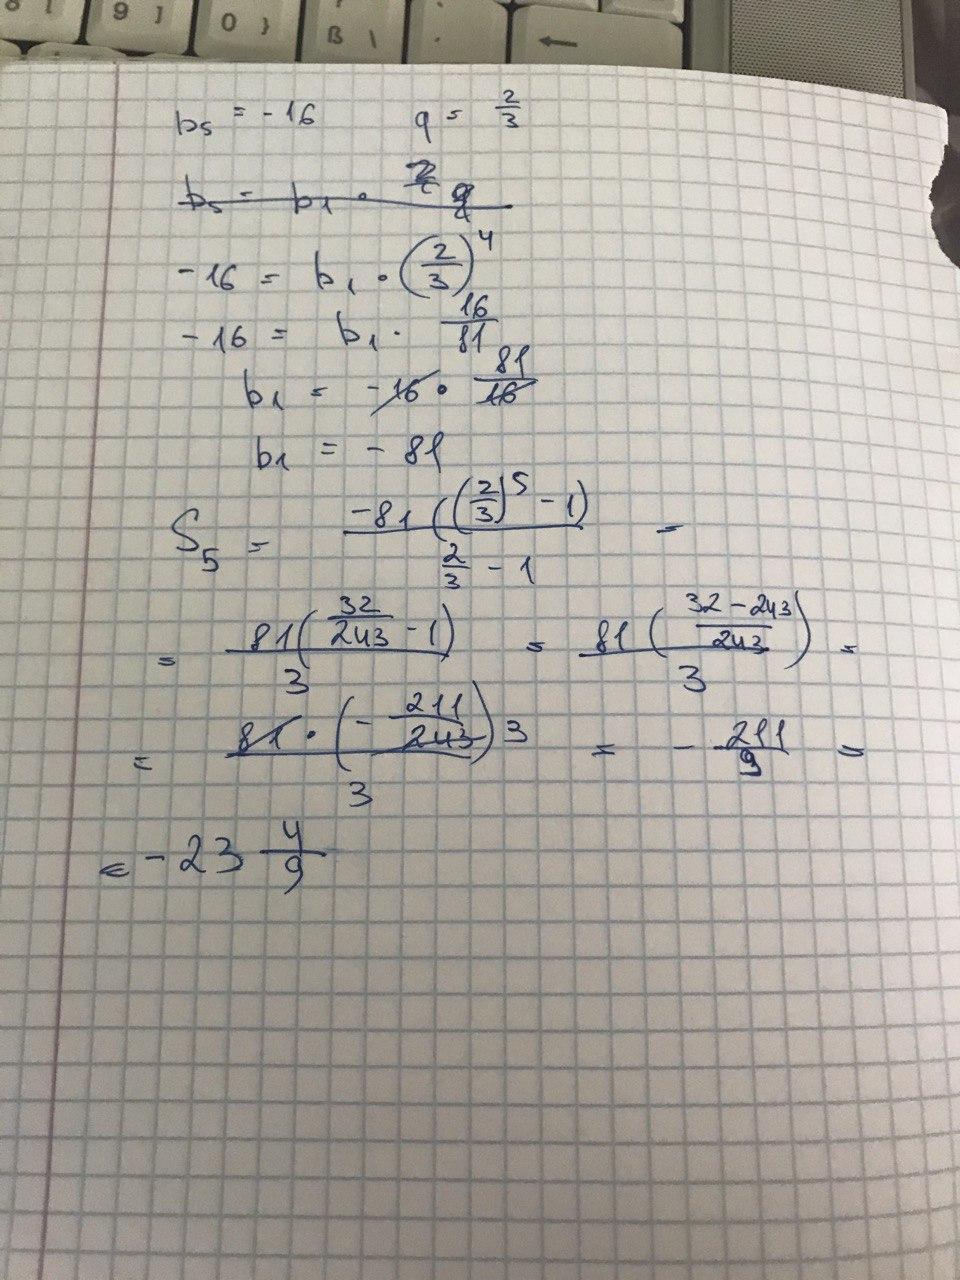 8 [ 9 ] 0 } ß \ . ←
b₅ = -16 q = 2/3
b₅ = b₁ · q
-16 = b₁ · (2/3)⁴
-16 = b₁ · 16/81
b₁ = -16 · 81/16
b₁ = - 81
S₅ = -81((2/3)⁵ - 1) / (2/3 - 1) =
= 81(32/243 - 1) / 3 = 81((32 - 243)/243) / 3 =
= 81 · (- 211/243) 3 / 3 = - 211/9 =
= - 23 4/9